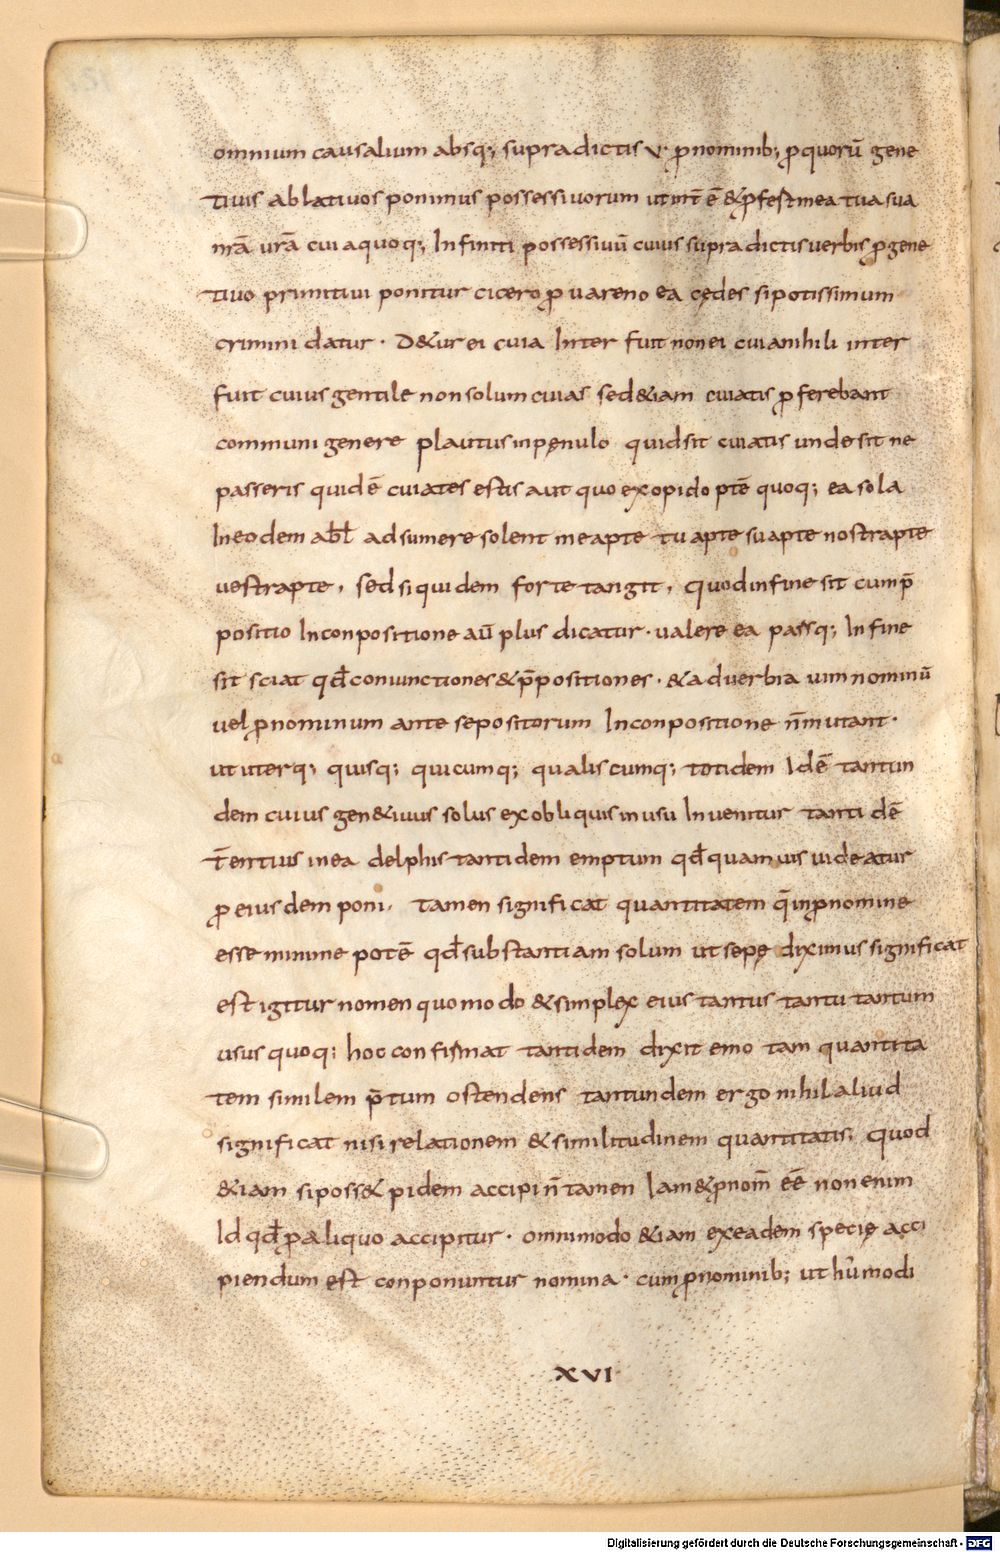 omnium causalium absq; supradictis v· ꝓnominib; ꝓ quorū gene
tiuis ablatiuos ponimus possessiuorum ut int̄ ē & p̄fest mea tua sua
nr̄a ur̄a cui a quoq; Infiniti possessiuū cuius supra dictis uerbis ꝓ gene
tiuo primitiui ponitur cicero ꝓ uareno ea cędes si potissimum
crimini datur · D&ur ei cuia Inter fuit non ei cuia nihili inter
fuit cuius gentile non solum cuias sed &iam cuiatis ꝓferebant
communi genere plautus in pęnulo quid sit cuiatis unde sit ne
passeris quid ē cuiates estis aut quo ex opido ptē quoq; ea sola
In eodem abl̄ adsumere solent meapte tuapte suapte nostrapte
uestrapte, sed si quidem forte tangit, quod in fine sit cum p̄
positio In conpositione aū plus dicatur · ualere ea passq; In fine
sit sciat qđ coniunctiones & p̄positiones · & aduerbia uim nominū
uel ꝓnominum ante se positorum In conpositione n̄ mutant ·
ut uterq; quisq; quicumq; qualiscumq; totidem Idē tantun
dem cuius gen&iuus solus ex obliquis in usu Inuenitur tantidē
t̄entius in ea delphis tantidem emptum qđ quamuis uideatur
ꝓ eiusdem poni, tamen significat quantitatem q̄ in ꝓnomine
esse minime potē qđ substantiam solum ut sepę diximus significat
est igitur nomen quomodo & simplex eius tantus tanta tantum
usus quoq; hoc confirmat tantidem dixit emo tam quantita
tem similem p̄tum ostendens tantundem ergo nihil aliud
significat nisi relationem & similitudinem quantitatis, quod
&iam si poss& pidem accipi n̄ tamen Iam & ꝓnom̄ eē non enim
Id qđ ꝓ aliquo accipitur · omnimodo &iam ex eadem specię acci
piendum est conponuntur nomina · cum ꝓnominib; ut hu̓modi
XVI
Digitalisierung gefördert durch die Deutsche Forschungsgemeinschaft - DFG